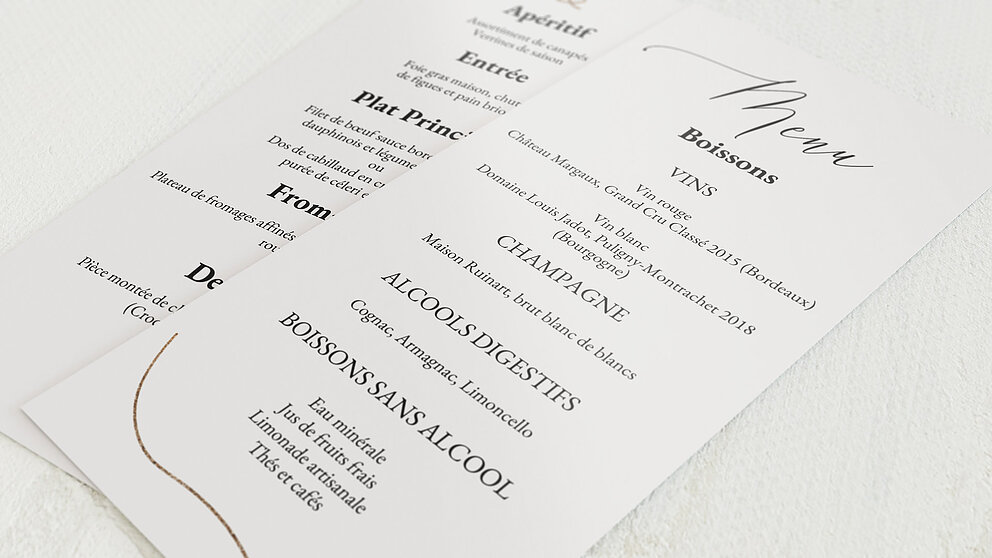 Apéritif
Assortiment de canapés
Verrines de saison
Entrée
Foie gras maison,
de figues et pain
Plat
Filet de bœuf sauce
dauphinois et
ou
Dos de cabillaud en
purée de céleri et
Plateau de fromages affinés
Pièce montée de
Menu
Boissons
VINS
Vin rouge
Château Margaux, Grand Cru Classé 2015 (Bordeaux)
Vin blanc
Domaine Louis Jadot, Puligny-Montrachet 2018
(Bourgogne)
CHAMPAGNE
Maison Ruinart, brut blanc de blancs
ALCOOLS DIGESTIFS
Cognac, Armagnac, Limoncello
BOISSONS SANS ALCOOL
Eau minérale
Jus de fruits frais
Limonade artisanale
Thés et cafés